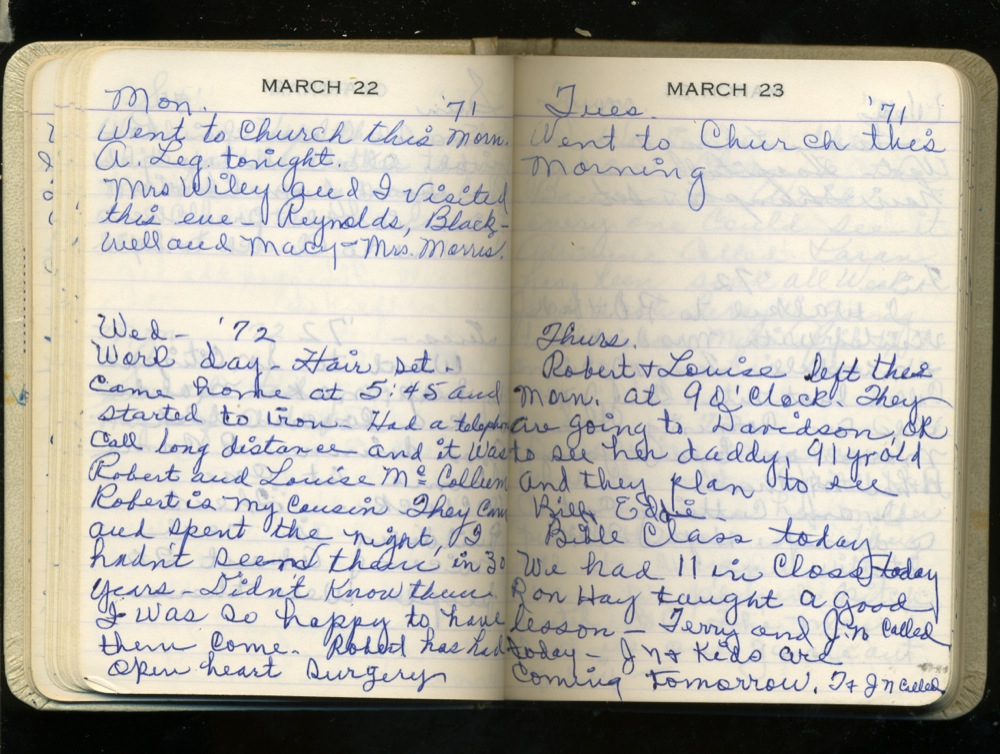 MARCH 22
Mon. '71
Went to Church this Morn.
A. Leg tonight.
Mrs Wiley and I visited
this eve - Reynolds, Black-
well and Macy - Mrs. Morris.
Wed - '72
Work day - Hair set -
Came home at 5:45 and
started to iron - Had a telephon
Call long distance and it was
Robert and Louise Mc Collum
Robert is my Cousin They Com
and spent the night, I
hadn't seen them in 30
years - Didn't Know them.
I was so happy to have
them come. Robert has had
open heart surgery
MARCH 23
Tues. '71
Went to Church this
Morning
Thurs.
Robert & Louise left this
Morn. at 9 O'Clock They
are going to Davidson, OK
to see her daddy, 91 yr old
and they plan to see
Bill, Eddie.
Bible Class today
We had 11 in Class today
Ron Hay taught a good
lesson - Terry and J.N. Called
today - J N & Kids are
Coming tomorrow. T & J N Called